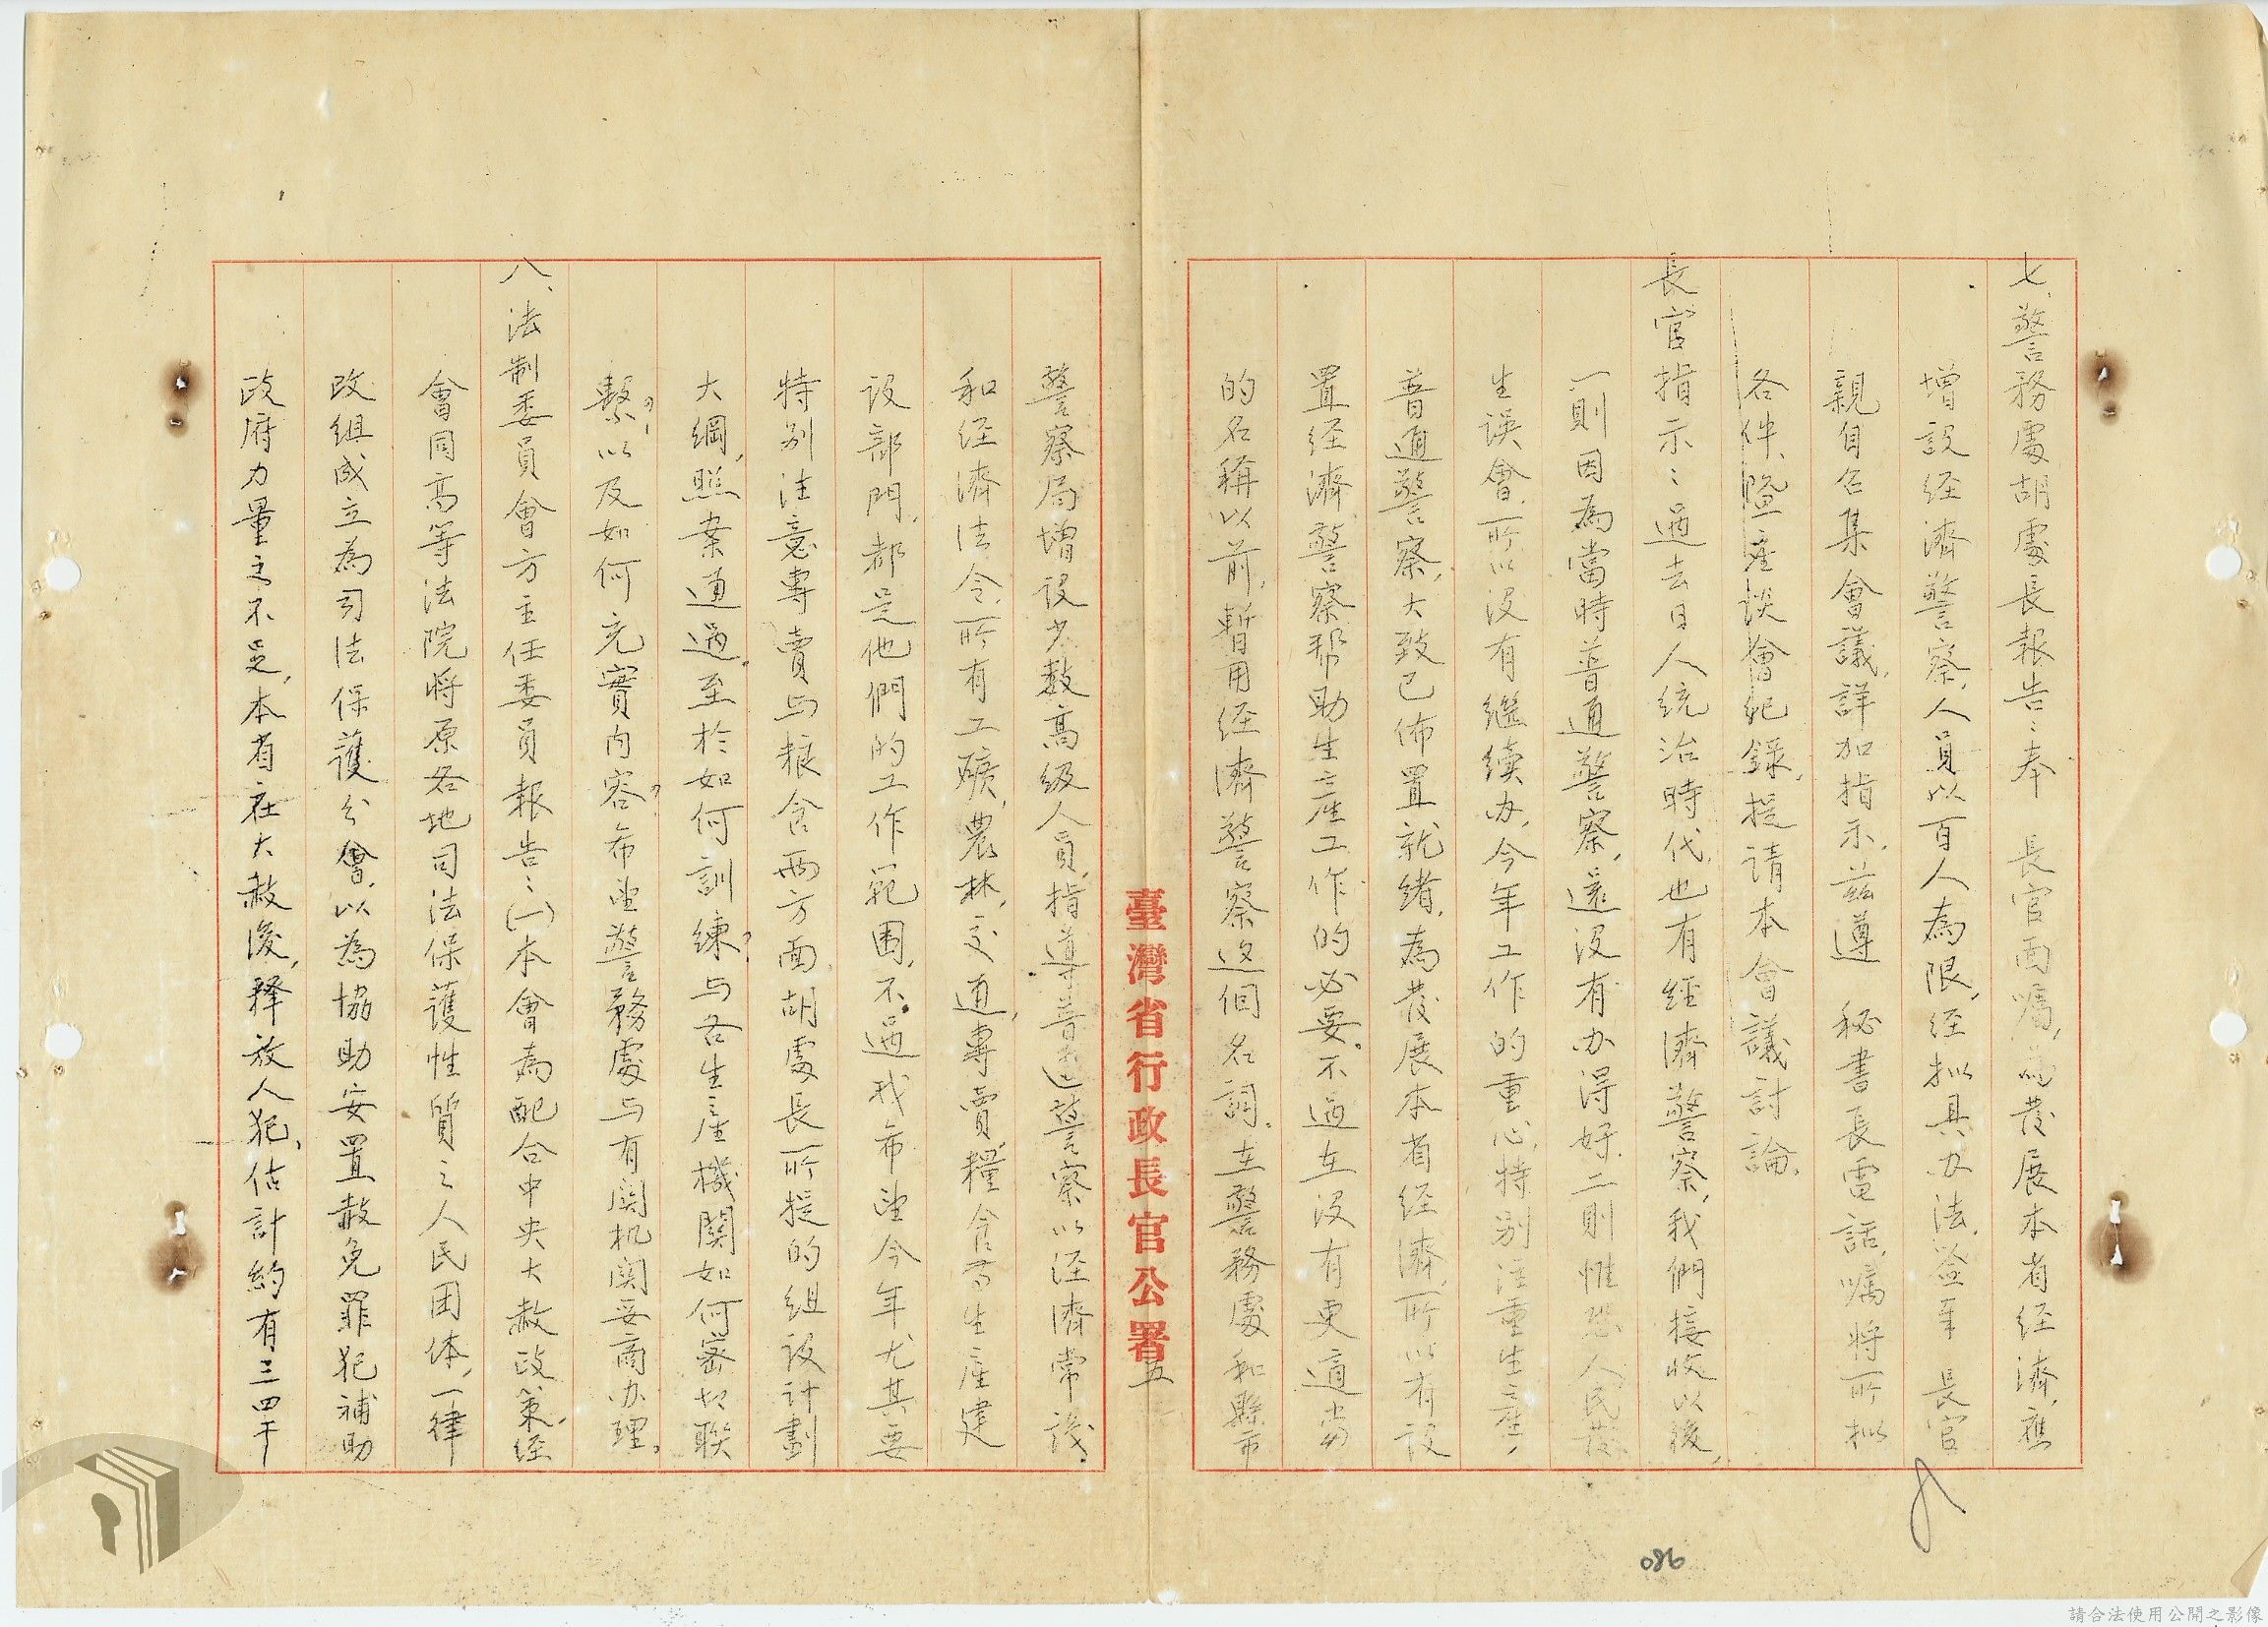 七、警務處胡處長報告:奉 長官面囑,為發展本省經濟,應
增設经濟警察,人員以百人為限,经拟具办法,簽奉 長官
親自召集會議,詳加指示,茲遵 秘書長電話,嘱将所拟
各件,暨座谈會纪錄,提请本會議討論.
長官指示:過去日人统治時代,也有經濟警察,我們接收以後,
一則因為當時普通警察,還沒有办得好.二則惟恐人民發
生误會,所以没有继续办,今年工作的重心,特别注重生產,
普通警察,大致已佈置就緒,為發展本省经濟,所以有设
置经濟警察帮助生產工作的必要。不過在没有更適當
的名稱以前,暫用经濟警察这個名詞。在警務處和縣市
警察局增设少数高级人員,指導普通警察以经濟常識
和经濟法令,所有工礦,農林,交通,專賣,糧食為生產建
设部門,都是他們的工作範围,不過我希望今年尤其要
特别注意專賣与粮食兩方面,胡處長所提的组设计劃
大綱,照案通過.至於如何訓練?与各生產機関如何密切联
繫?以及如何充實内容?希望警務處与有関机関妥商办理。
八、法制委員會方主任委員報告:(一)本會為配合中央大赦政策,经
會同高等法院将原各地司法保護性質之人民团体,一律
改組成立為司法保護公會,以為協助安置赦免罪犯補助
政府力量之不足,本省在大赦後,释放人犯,估計約有三四千
臺灣省行政長官公署
五
086
請合法使用公開之影像